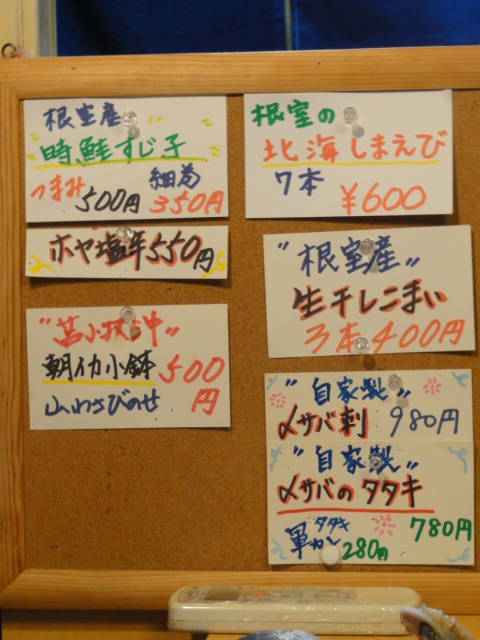 根室産
時鮭すじ子
つまみ 500円
細巻 350円
ホヤ塩辛550円
"苫小牧沖"
朝イカ小鉢 500円
山わさびのせ
根室の
北海しまえび
7本
¥600
"根室産"
生干しこまい
3本400円
"自家製"
〆サバ刺 980円
"自家製"
〆サバのタタキ
780円
軍カン タタキ 280円